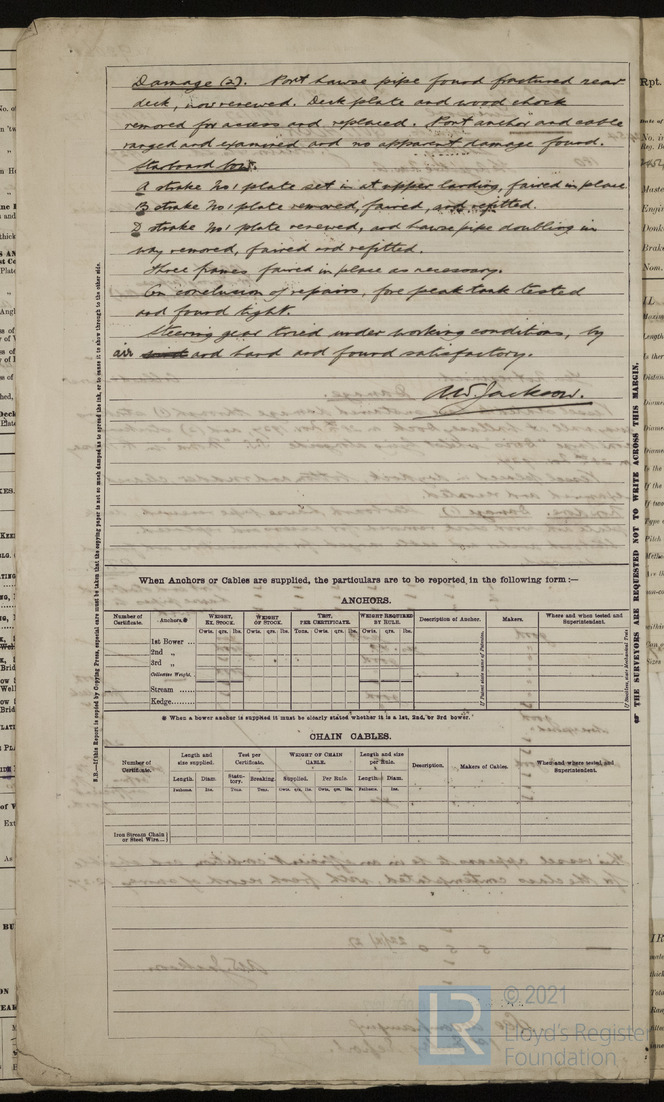 Damage (2). Port hawse pipe found fractured near
deck, now renewed. Deck plate and wood chock
removed for access and replaced. Port anchor and cable
ranged and examined and no apparent damage found.
Starboard bow.
A strake No 1 plate set in at upper landing, faired in place
B strake No 1 plate removed, faired, and refitted.
D strake No 1 plate renewed, and hawse pipe doubling in
way removed, faired and refitted.
Three frames faired in place as necessary.
On conclusion of repairs, fore peak tank tested
and found tight.
Steering gear tried under working conditions, by
and hand and found satisfactory.
Jackson.
When Anchors or Cables are supplied, the particulars are to be reported in the following form :—
ANCHORS.
Number of Certificate. Anchors.* WEIGHT, EX. STOCK. WEIGHT OF STOCK. TEST, PER CERTIFICATE. WEIGHT REQUIRED BY RULE. Description of Anchor. Makers. Where and when tested and Superintendent.
Cwts. qrs. lbs. Cwts. qrs. lbs. Tons. Cwts. qrs. lbs. Cwts. qrs. lbs.
1st Bower ...
2nd „
3rd „
Collective Weight.
Stream ......
Kedge........
* When a bower anchor is supplied it must be clearly stated whether it is a 1st, 2nd, or 3rd bower.
CHAIN CABLES.
Number of Certificate. Length and size supplied. Test per Certificate. WEIGHT OF CHAIN CABLE. Length and size per Rule. Description. Makers of Cables. When and where tested and Superintendent.
Length. Diam. Statutory. Breaking. Supplied. Per Rule. Length. Diam.
Fathoms. Ins. Tons. Tons. Cwts. qrs. lbs. Cwts. qrs. lbs. Fathoms. Ins.
Iron Stream Chain or Steel Wire...
N.B.—If this Report is copied by Copying Press, especial care must be taken that the copying paper is not so much damped as to spread the ink, or to cause it to show through to the other side.
THE SURVEYORS ARE REQUESTED NOT TO WRITE ACROSS THIS MARGIN.
Rpt.
LR
© 2021
Lloyd's Register
Foundation